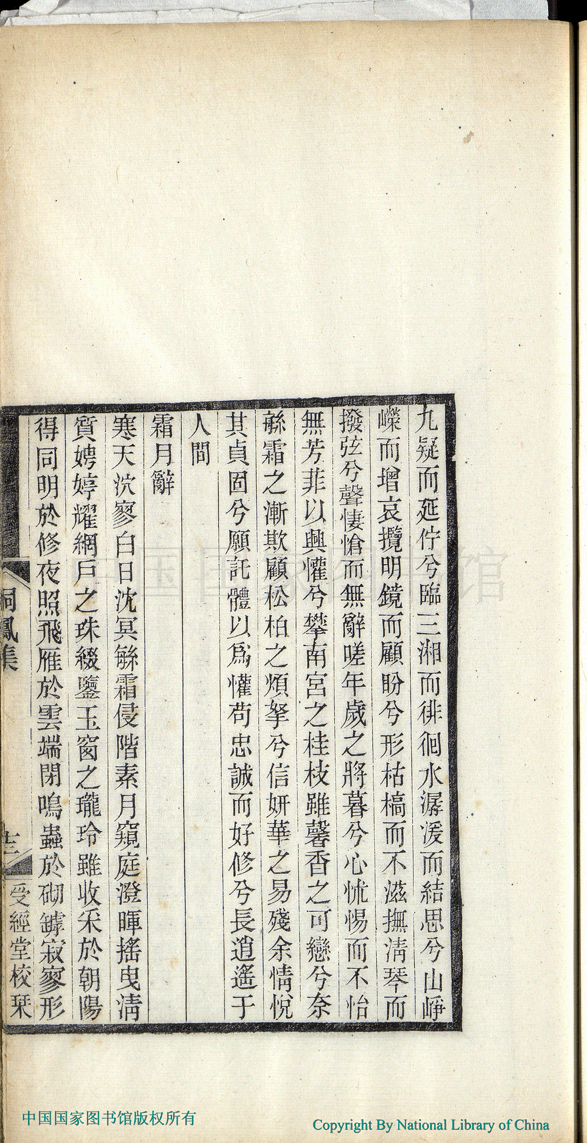 九疑而延佇兮臨三湘而徘徊水潺湲而結思兮山崢
嶸而增哀攬明鏡而顧盼兮形枯槁而不滋撫清琴而
撥弦兮聲悽愴而無辭嗟年歲之將暮兮心怵惕而不怡
無芳菲以興懽兮攀南宮之桂枝雖馨香之可戀兮奈
緐霜之漸欺顧松柏之煩挐兮信妍華之易殘余情悅
其貞固兮願託體以爲懽苟忠誠而好修兮長逍遙于
人間
霜月辭
寒天泬寥白日沈冥緐霜侵階素月窺庭澄暉搖曳清
質娉婷耀網戶之珠綴鑒玉窗之瓏玲雖收采於朝陽
得同明於修夜照飛雁於雲端閉鳴蟲於砌罅寂寥形
桐鳳集
十二
受經堂校栞
中国国家图书馆
中国国家图书馆版权所有
Copyright By National Library of China